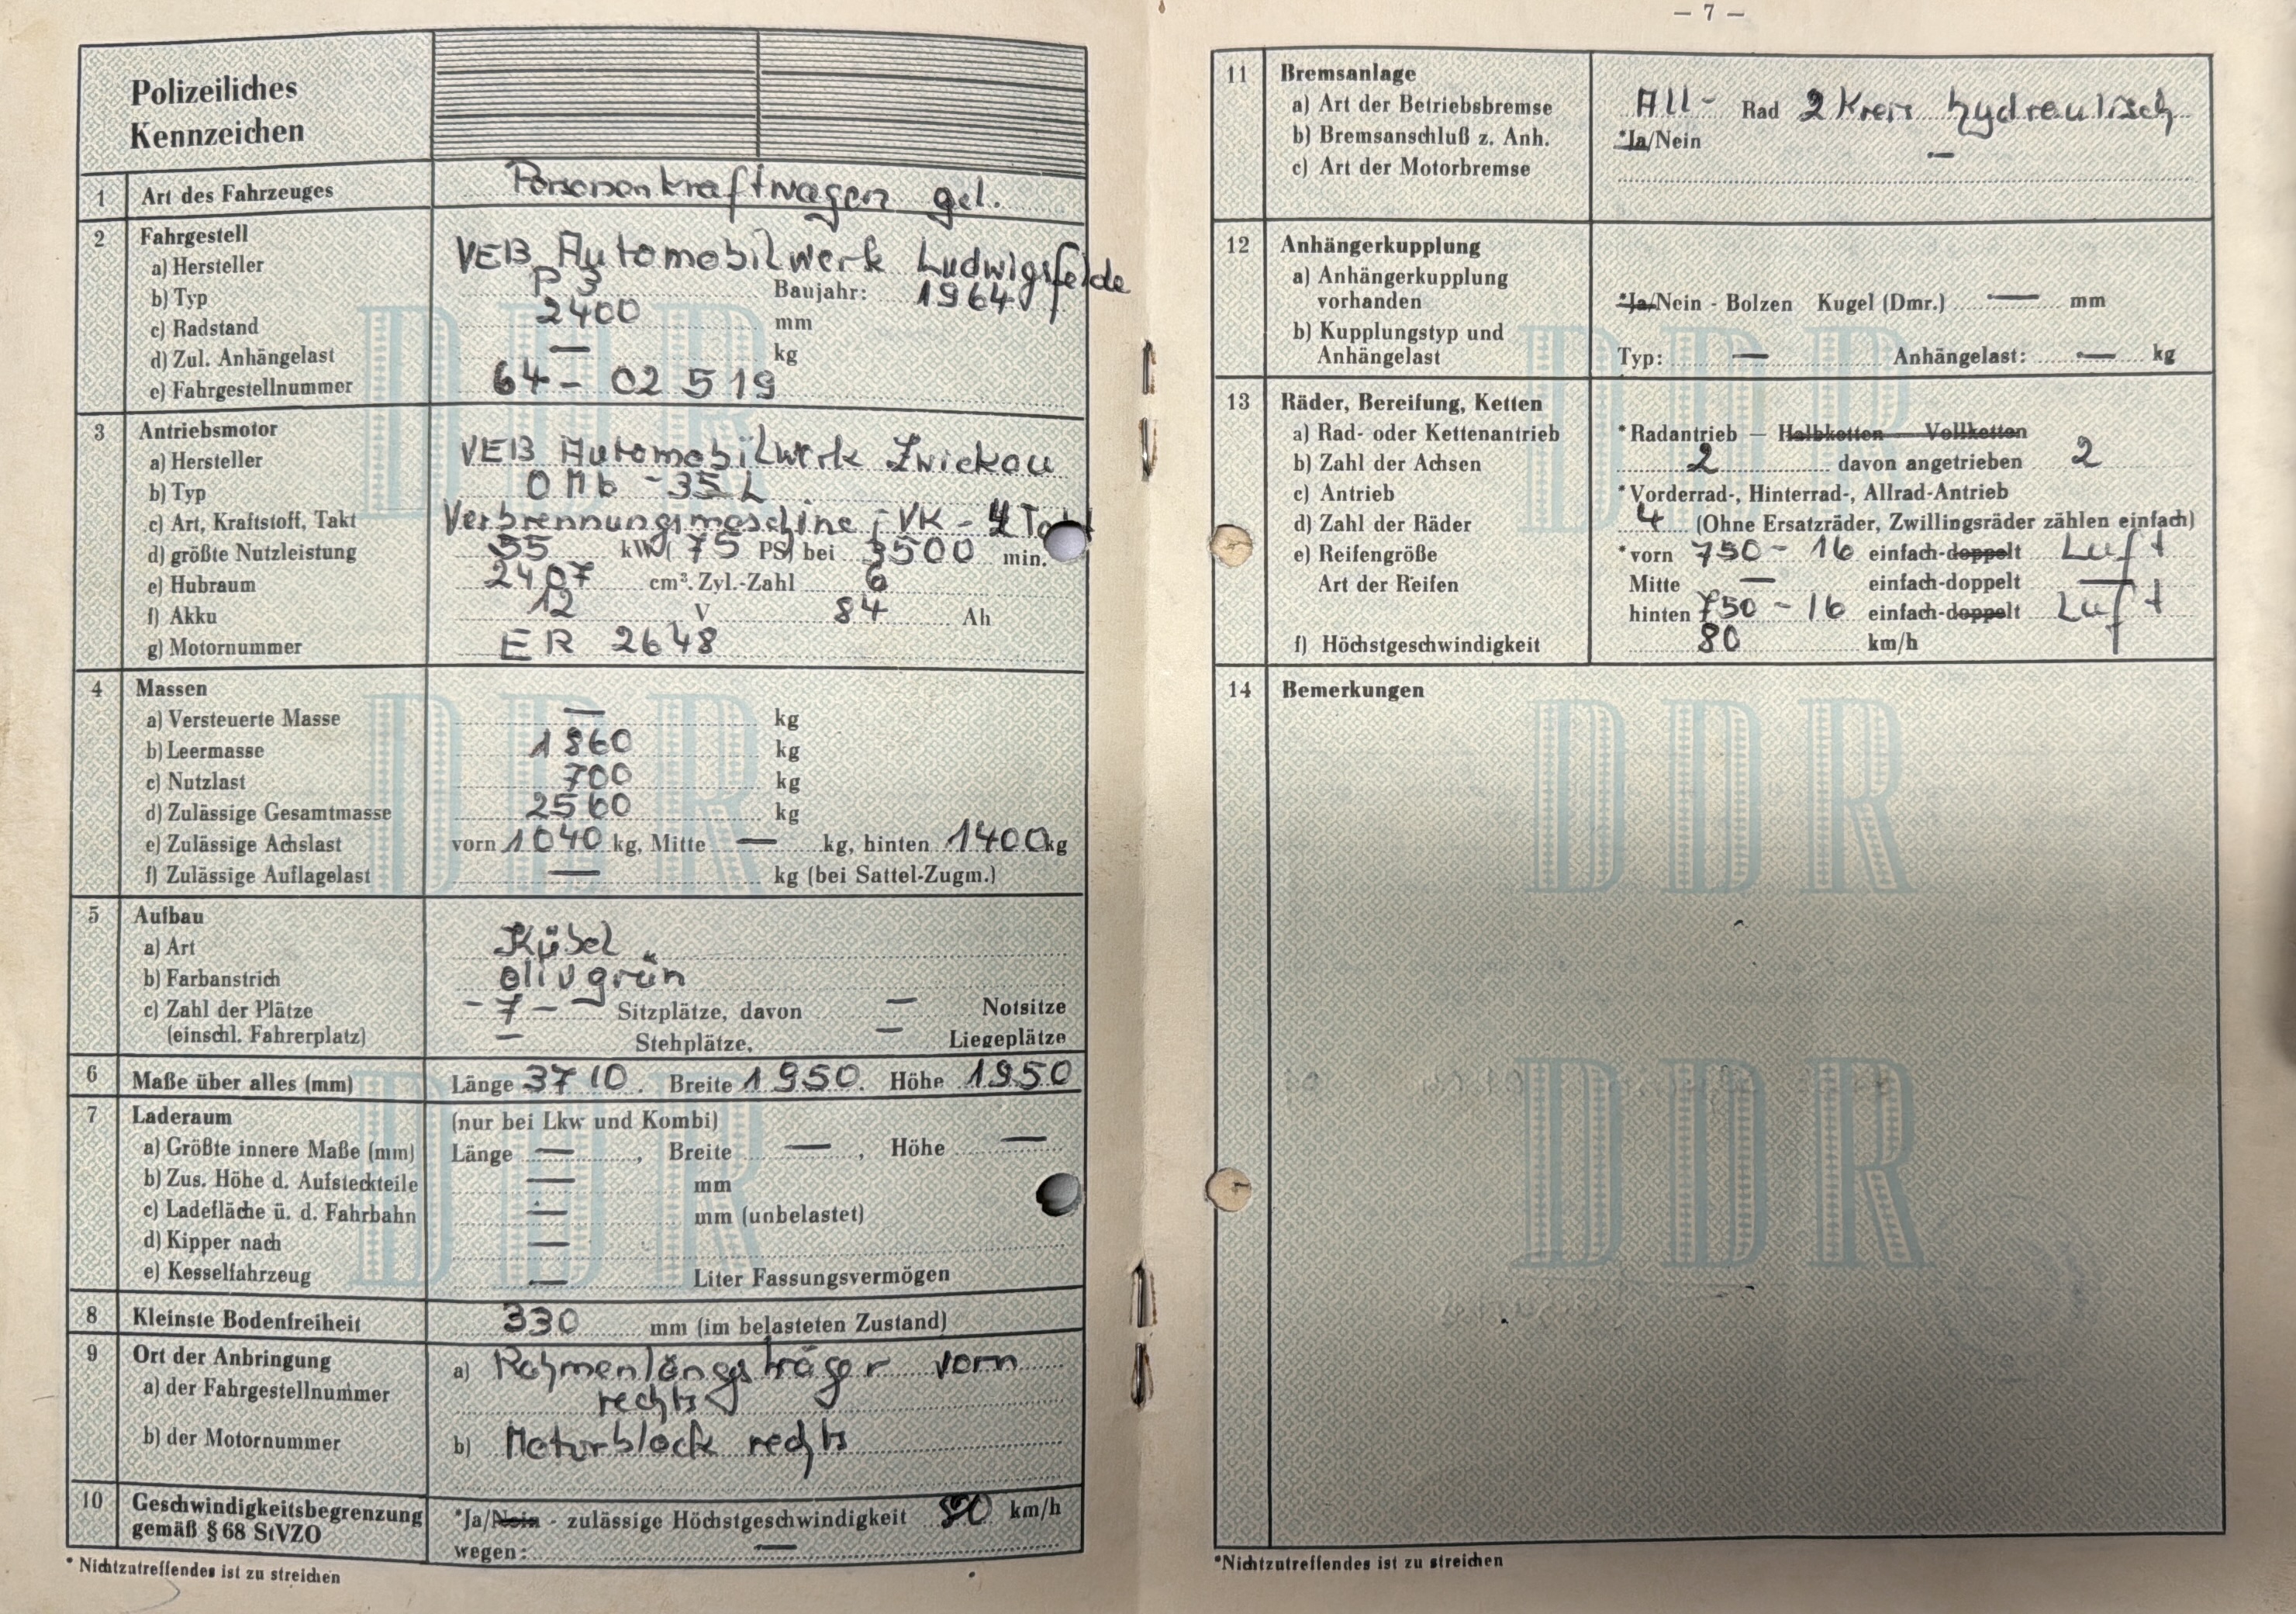 Polizeiliches
Kennzeichen
1 Art des Fahrzeuges Personenkraftwagen gel.
2 Fahrgestell
a) Hersteller VEB Automobilwerk Ludwigsfelde
b) Typ P 3 Baujahr: 1964
c) Radstand 2400 mm
d) Zul. Anhängelast — kg
e) Fahrgestellnummer 64 - 02 519
3 Antriebsmotor
a) Hersteller VEB Automobilwerk Zwickau
b) Typ OM6 - 35 L
c) Art, Kraftstoff, Takt Verbrennungsmaschine; VK - 4 Takt
d) größte Nutzleistung 55 kW ( 75 PS) bei 3500 min.
e) Hubraum 2407 cm³. Zyl.-Zahl 6
f) Akku 12 V 84 Ah
g) Motornummer ER 2648
4 Massen
a) Versteuerte Masse — kg
b) Leermasse 1860 kg
c) Nutzlast 700 kg
d) Zulässige Gesamtmasse 2560 kg
e) Zulässige Achslast vorn 1040 kg, Mitte — kg, hinten 1400 kg
f) Zulässige Auflagelast — kg (bei Sattel-Zugm.)
5 Aufbau
a) Art Kübel
b) Farbanstrich olivgrün
c) Zahl der Plätze - 7 - Sitzplätze, davon — Notsitze
(einschl. Fahrerplatz) — Stehplätze, — Liegeplätze
6 Maße über alles (mm) Länge 3710. Breite 1950. Höhe 1950
7 Laderaum (nur bei Lkw und Kombi)
a) Größte innere Maße (mm) Länge —, Breite —, Höhe —
b) Zus. Höhe d. Aufsteckteile — mm
c) Ladefläche ü. d. Fahrbahn — mm (unbelastet)
d) Kipper nach —
e) Kesselfahrzeug — Liter Fassungsvermögen
8 Kleinste Bodenfreiheit 330 mm (im belasteten Zustand)
9 Ort der Anbringung
a) der Fahrgestellnummer a) Rahmenlängsträger vorn
rechts
b) der Motornummer b) Motorblock rechts
10 Geschwindigkeitsbegrenzung
gemäß § 68 StVZO *Ja/Nein - zulässige Höchstgeschwindigkeit 80 km/h
wegen: —
* Nichtzutreffendes ist zu streichen
— 7 —
11 Bremsanlage
a) Art der Betriebsbremse All - Rad 2 Kreis hydraulisch
b) Bremsanschluß z. Anh. *Ja/Nein
c) Art der Motorbremse —
12 Anhängerkupplung
a) Anhängerkupplung
vorhanden *Ja/Nein - Bolzen Kugel (Dmr.) — mm
b) Kupplungstyp und
Anhängelast Typ: — Anhängelast: — kg
13 Räder, Bereifung, Ketten
a) Rad- oder Kettenantrieb *Radantrieb — Halbketten — Vollketten
b) Zahl der Achsen 2 davon angetrieben 2
c) Antrieb *Vorderrad-, Hinterrad-, Allrad-Antrieb
d) Zahl der Räder 4 (Ohne Ersatzräder, Zwillingsräder zählen einfach)
e) Reifengröße *vorn 750 - 16 einfach-doppelt Luft
Art der Reifen Mitte — einfach-doppelt —
hinten 750 - 16 einfach-doppelt Luft
f) Höchstgeschwindigkeit 80 km/h
14 Bemerkungen
DDR
DDR
DDR
DDR
DDR
DDR
*Nichtzutreffendes ist zu streichen